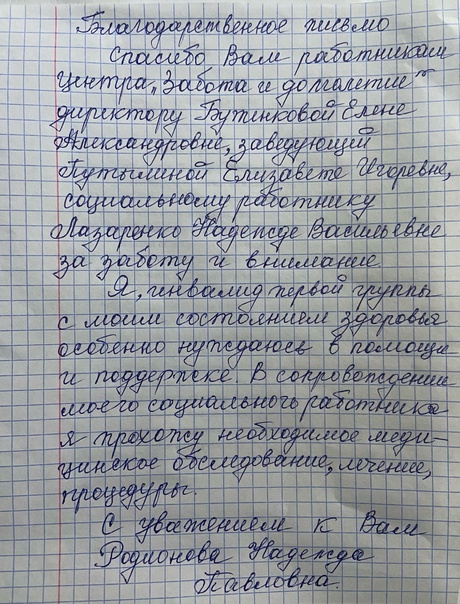 Благодарственное письмо
Спасибо Вам работникам
центра „Забота и долголетие"
директору Бутенковой Елене
Александровне, заведующей
Путылиной Елизавете Игоревне,
социальному работнику
Лазаренко Надежде Васильевне
за заботу и внимание
Я, инвалид первой группы
с моим состоянием здоровья
особенно нуждаюсь в помощи
и поддержке. В сопровождении
моего социального работника
я прохожу необходимое меди-
цинское обследование, лечение,
процедуры.
С уважением к Вам
Родионова Надежда
Павловна.